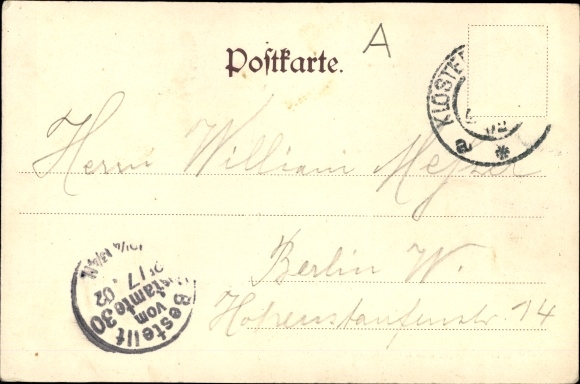 A
Postkarte.
KLOSTE
02
a
*
Herrn William Meyer
Berlin W.
Hohenstaufenstr. 14
Bestellt
vom
Postamte 30
17. 02